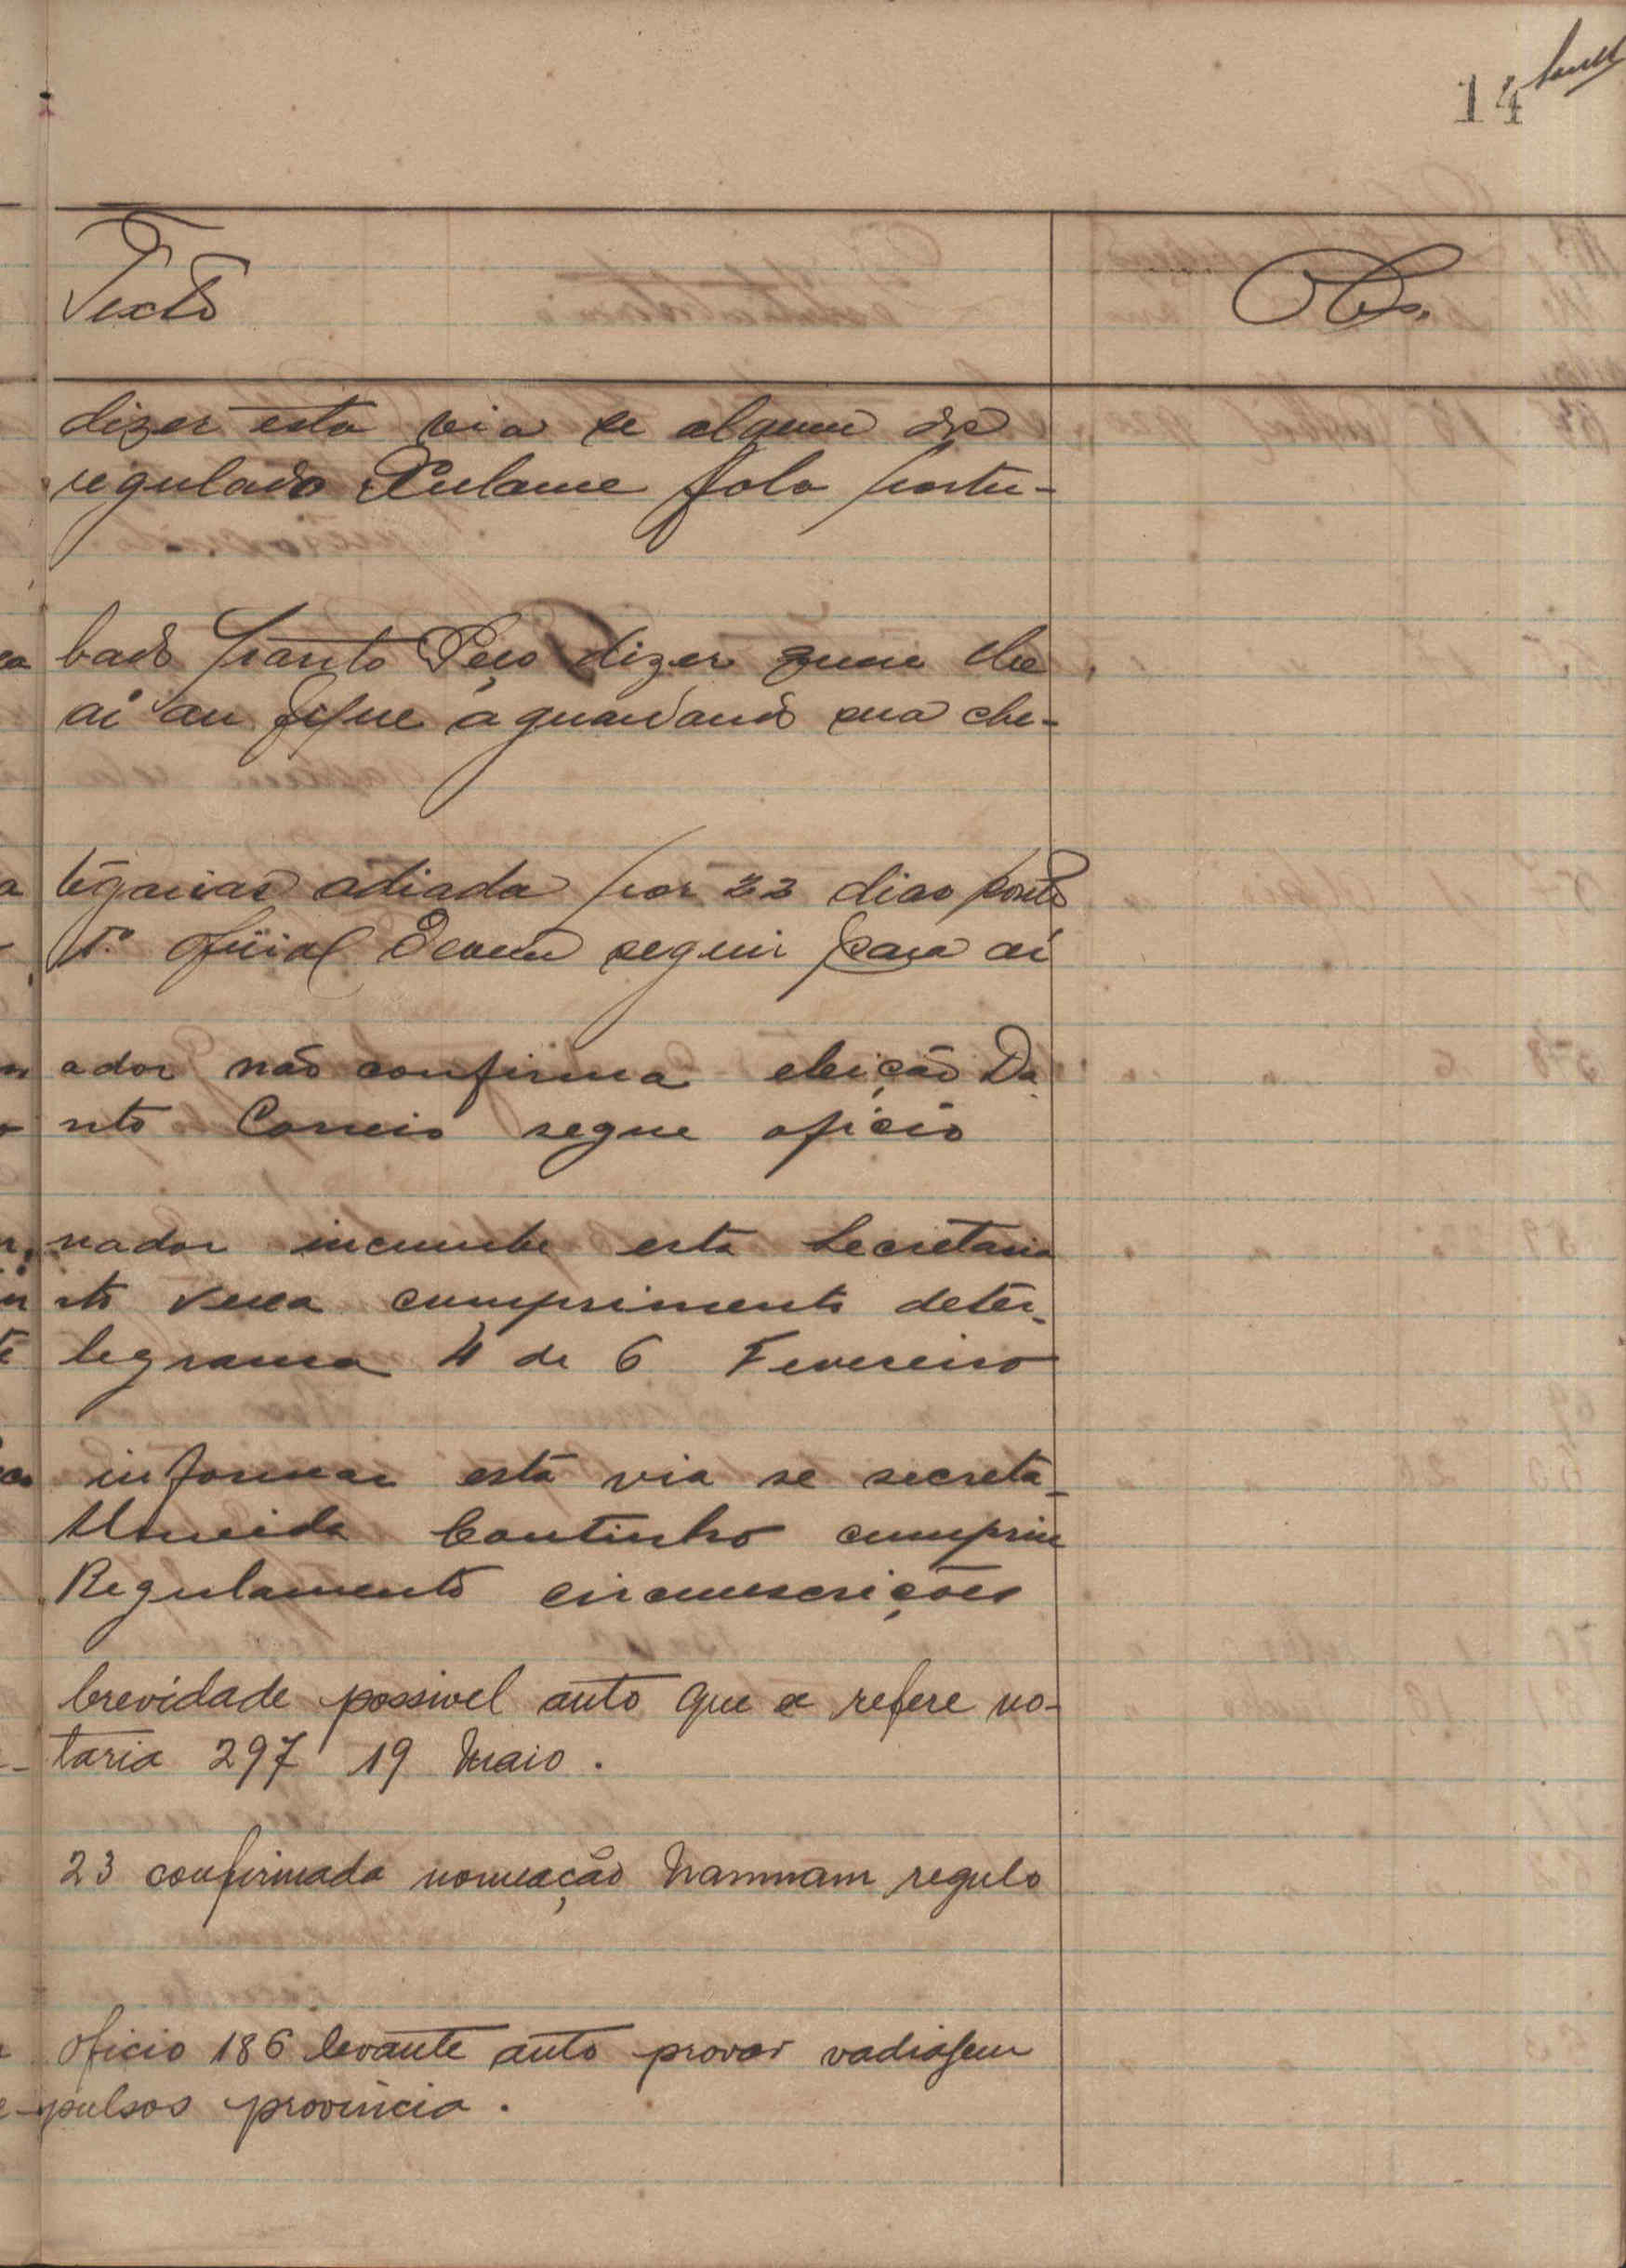 14
Texto
Obs.
dizer esta via se alguem do
regulado fala portu-
bado Santo Peço dizer quem
aí ou fique aguardando sua che-
adiada por 22 dias
1º oficial seguir para aí
ador não confirma eleição Da
nto Correio segue oficio
nador incumbe esta Secretaria
cumprimento deter-
legrama 4 de 6 Fevereiro
informar esta via se secreta-
Almeida Coutinho cumpriu
Regulamento circunscrições
brevidade possivel auto que se refere no-
taria 297 19 Maio.
23 confirmada nomeação regulo
oficio 186 levante auto provar vadiagem
pulsos provincia.